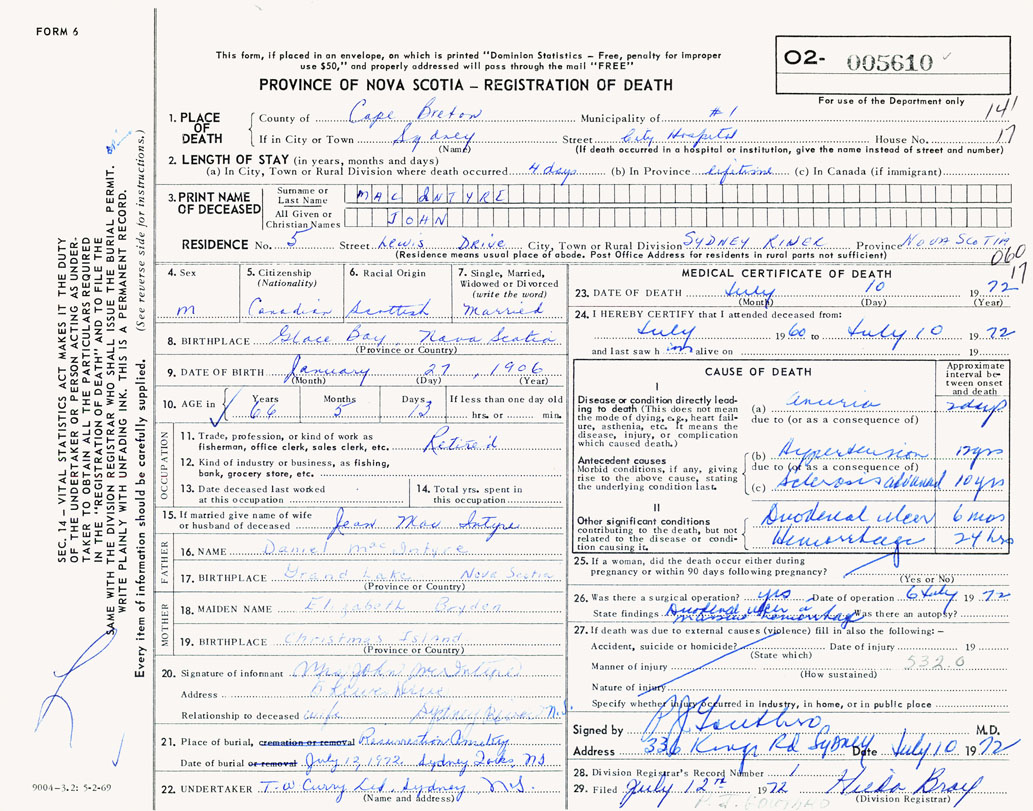 FORM 6
This form, if placed in an envelope, on which is printed "Dominion Statistics – Free, penalty for improper
use $50," and properly addressed will pass through the mail "FREE"
PROVINCE OF NOVA SCOTIA – REGISTRATION OF DEATH
O2- 005610
For use of the Department only
141
17
1. PLACE OF DEATH
County of Cape Breton Municipality of #1
If in City or Town Sydney Street City Hospital House No.
(Name) (If death occurred in a hospital or institution, give the name instead of street and number)
2. LENGTH OF STAY (in years, months and days)
(a) In City, Town or Rural Division where death occurred 4 days (b) In Province lifetime (c) In Canada (if immigrant)
3. PRINT NAME OF DECEASED
Surname or Last Name MAC INTYRE
All Given or Christian Names JOHN
RESIDENCE No. 5 Street Lewis Drive City, Town or Rural Division SYDNEY RIVER Province NOVA SCOTIA
(Residence means usual place of abode. Post Office Address for residents in rural parts not sufficient)
060
17
4. Sex
M
5. Citizenship (Nationality)
Canadian
6. Racial Origin
Scottish
7. Single, Married, Widowed or Divorced (write the word)
Married
8. BIRTHPLACE Glace Bay, Nova Scotia
(Province or Country)
9. DATE OF BIRTH January 27, 1906
(Month) (Day) (Year)
10. AGE in Years Months Days If less than one day old
66 5 13 hrs. or min.
OCCUPATION
11. Trade, profession, or kind of work as fisherman, office clerk, sales clerk, etc. Retired
12. Kind of industry or business, as fishing, bank, grocery store, etc.
13. Date deceased last worked at this occupation
14. Total yrs. spent in this occupation
15. If married give name of wife or husband of deceased Jean Mac Intyre
FATHER
16. NAME Daniel MacIntyre
17. BIRTHPLACE Grand Lake Nova Scotia
(Province or Country)
MOTHER
18. MAIDEN NAME Elizabeth
19. BIRTHPLACE Christmas Island
(Province or Country)
20. Signature of informant Mrs John MacIntyre
Address
Relationship to deceased wife Sydney River N.S.
21. Place of burial, cremation or removal Resurrection Cemetery
Date of burial or removal July 13, 1972. Sydney Forks, NS
22. UNDERTAKER T.W Curry Ltd, Sydney, N.S.
(Name and address)
MEDICAL CERTIFICATE OF DEATH
23. DATE OF DEATH July 10 1972
(Month) (Day) (Year)
24. I HEREBY CERTIFY that I attended deceased from:
July 1960 to July 10 1972
and last saw him alive on 19
CAUSE OF DEATH
Approximate interval between onset and death
I
Disease or condition directly leading to death (This does not mean the mode of dying, e.g., heart failure, asthenia, etc. It means the disease, injury, or complication which caused death.)
(a) anuria 2 days
due to (or as a consequence of)
Antecedent causes
Morbid conditions, if any, giving rise to the above cause, stating the underlying condition last.
(b) Hypertension 12 yrs
due to (or as a consequence of)
(c) Sclerosis advanced 10 yrs
II
Other significant conditions contributing to the death, but not related to the disease or condition causing it.
Duodenal ulcer 6 mos
Hemorrhage 24 hrs
25. If a woman, did the death occur either during pregnancy or within 90 days following pregnancy?
(Yes or No)
26. Was there a surgical operation? yes Date of operation 6 July 1972
State findings Duodenal ulcer massive hemorrhage Was there an autopsy?
27. If death was due to external causes (violence) fill in also the following: –
Accident, suicide or homicide? Date of injury 19
(State which)
Manner of injury 532.0
(How sustained)
Nature of injury
Specify whether injury occurred in industry, in home, or in public place
Signed by M.D.
Address 336 Kings Rd Sydney Date July 10 1972
28. Division Registrar's Record Number 1
29. Filed July 12th 1972 Hilda Bray
(Division Registrar)
SEC. 14 – VITAL STATISTICS ACT MAKES IT THE DUTY
OF THE UNDERTAKER OR PERSON ACTING AS UNDER-
TAKER TO OBTAIN ALL THE PARTICULARS REQUIRED
IN THE "REGISTRATION OF DEATH" AND TO FILE THE
SAME WITH THE DIVISION REGISTRAR WHO SHALL ISSUE THE BURIAL PERMIT.
WRITE PLAINLY WITH UNFADING INK. THIS IS A PERMANENT RECORD.
Every item of information should be carefully supplied. (See reverse side for instructions.)
9004–3.2: 5-2-69